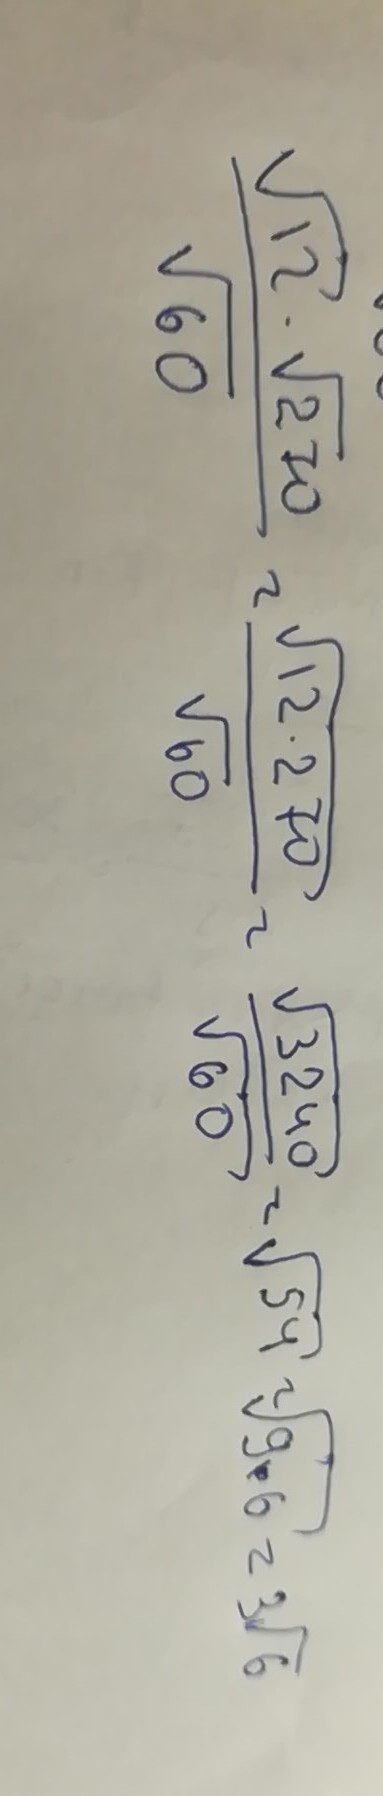 √12 · √270 / √60 = √12·270 / √60 = √3240 / √60 = √54 = √9·6 = 3√6